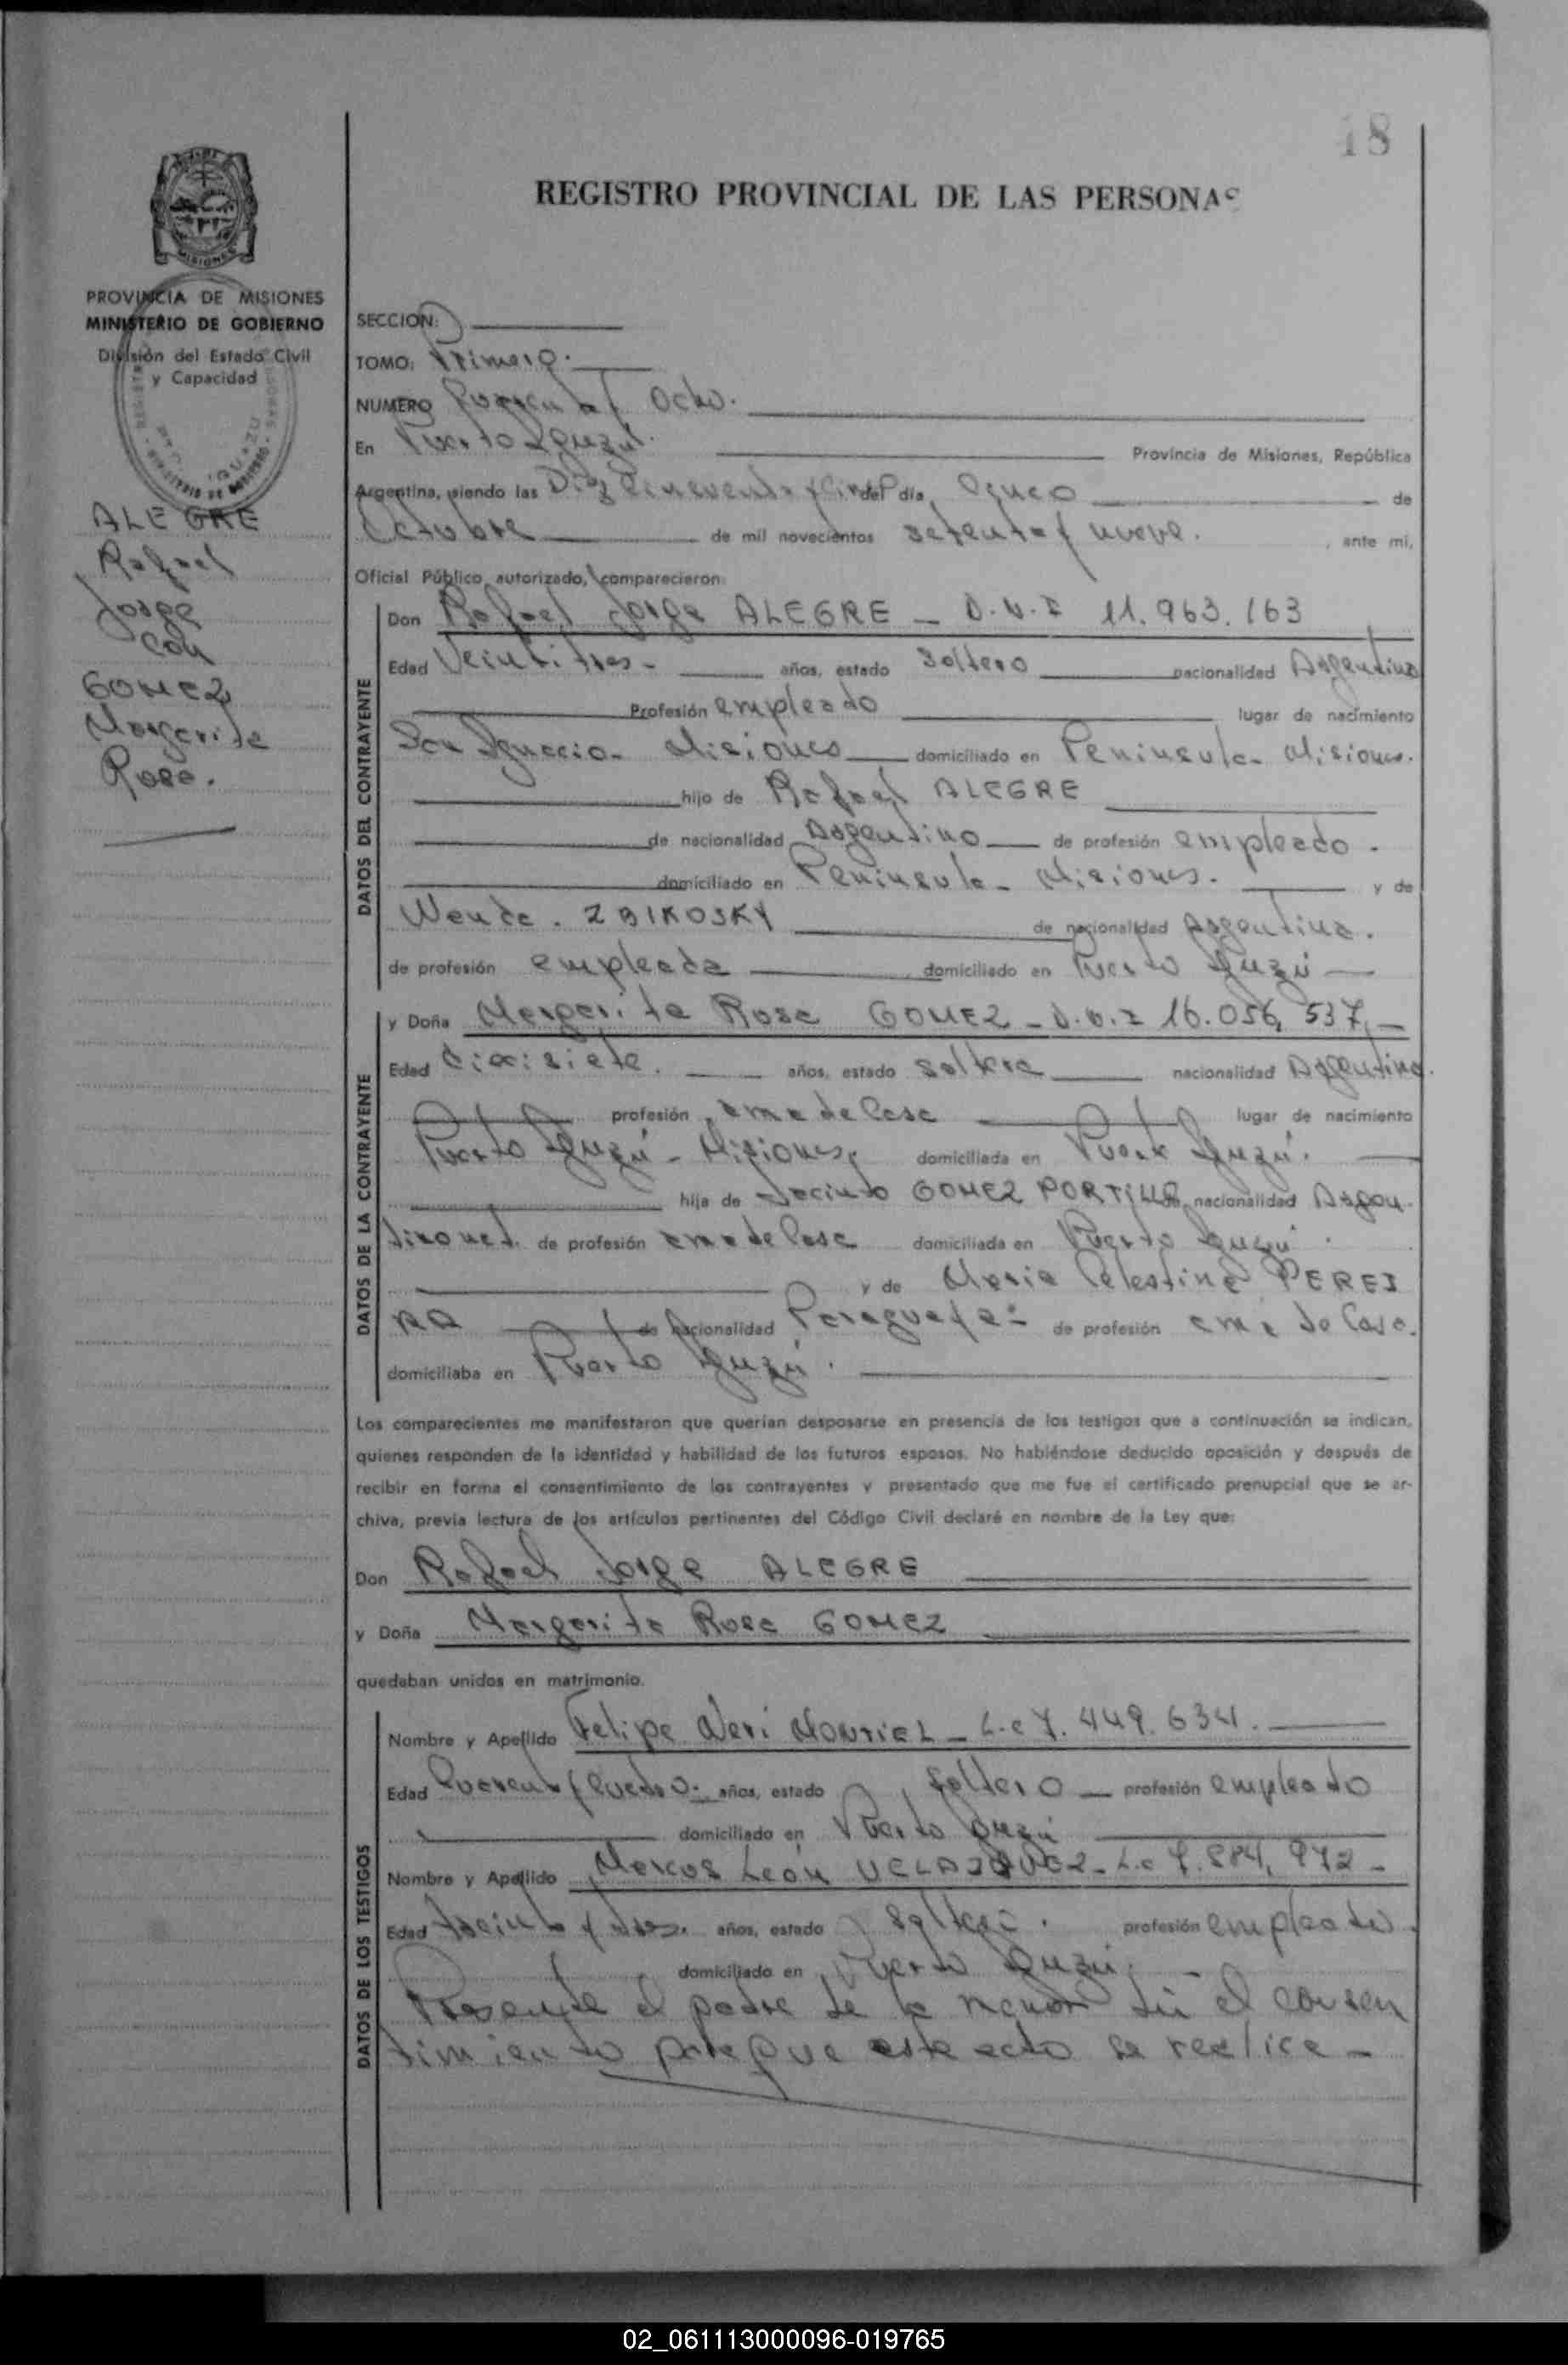 18
REGISTRO PROVINCIAL DE LAS PERSONAS
MISIONES
PROVINCIA DE MISIONES
MINISTERIO DE GOBIERNO
División del Estado Civil
y Capacidad
ALEGRE
Rafael
Jorge
con
GOMEZ
Margarita
Rosa.
SECCION:
TOMO: Primero.
NUMERO Ocho.
En Puerto Iguazú. Provincia de Misiones, República
Argentina, siendo las Diez del día Once de
Octubre de mil novecientos setenta y nueve. , ante mi,
Oficial Público autorizado, comparecieron:
DATOS DEL CONTRAYENTE
Don Rafael Jorge ALEGRE - D.N.I 11.963.163
Edad Veintitres - años, estado soltero nacionalidad Argentino
Profesión empleado lugar de nacimiento
San Ignacio - Misiones domiciliado en Peninsula - Misiones.
hijo de Rafael ALEGRE
de nacionalidad Argentino de profesión empleado.
domiciliado en Peninsula - Misiones. y de
Wanda. ZBIKOSKY de nacionalidad Argentina.
de profesión empleada domiciliado en Puerto Iguazú
DATOS DE LA CONTRAYENTE
y Doña Margarita Rosa GOMEZ - D.N.I 16.056,537,-
Edad diecisiete. años, estado soltera nacionalidad Argentina.
profesión ama de casa lugar de nacimiento
Puerto Iguazú - Misiones domiciliada en Puerto Iguazú.
hija de Jacinto GOMEZ PORTILLO de nacionalidad Argen
de profesión ama de casa domiciliada en Puerto Iguazú.
y de Maria Celestina PEREI
RA de nacionalidad Paraguaya - de profesión ama de casa.
domiciliaba en Puerto Iguazú.
Los comparecientes me manifestaron que querían desposarse en presencia de los testigos que a continuación se indican,
quienes responden de la identidad y habilidad de los futuros esposos. No habiéndose deducido oposición y después de
recibir en forma el consentimiento de los contrayentes y presentado que me fue el certificado prenupcial que se ar-
chiva, previa lectura de los artículos pertinentes del Código Civil declaré en nombre de la Ley que:
Don Rafael Jorge ALEGRE
y Doña Margarita Rosa GOMEZ
quedaban unidos en matrimonio.
DATOS DE LOS TESTIGOS
Nombre y Apellido Felipe Neri MONTIEL - L.e 7.449.634.
Edad Cuarenta y cuatro. años, estado soltero - profesión empleado
domiciliado en Puerto Iguazú
Nombre y Apellido Marcos León VELAZQUEZ - L.e 7.884,972 -
Edad treinta y tres. años, estado soltero. profesión empleado.
domiciliado en Puerto Iguazú.
Presente el padre de la menor dió el consen
timiento para que este acto se realice -
02_061113000096-019765